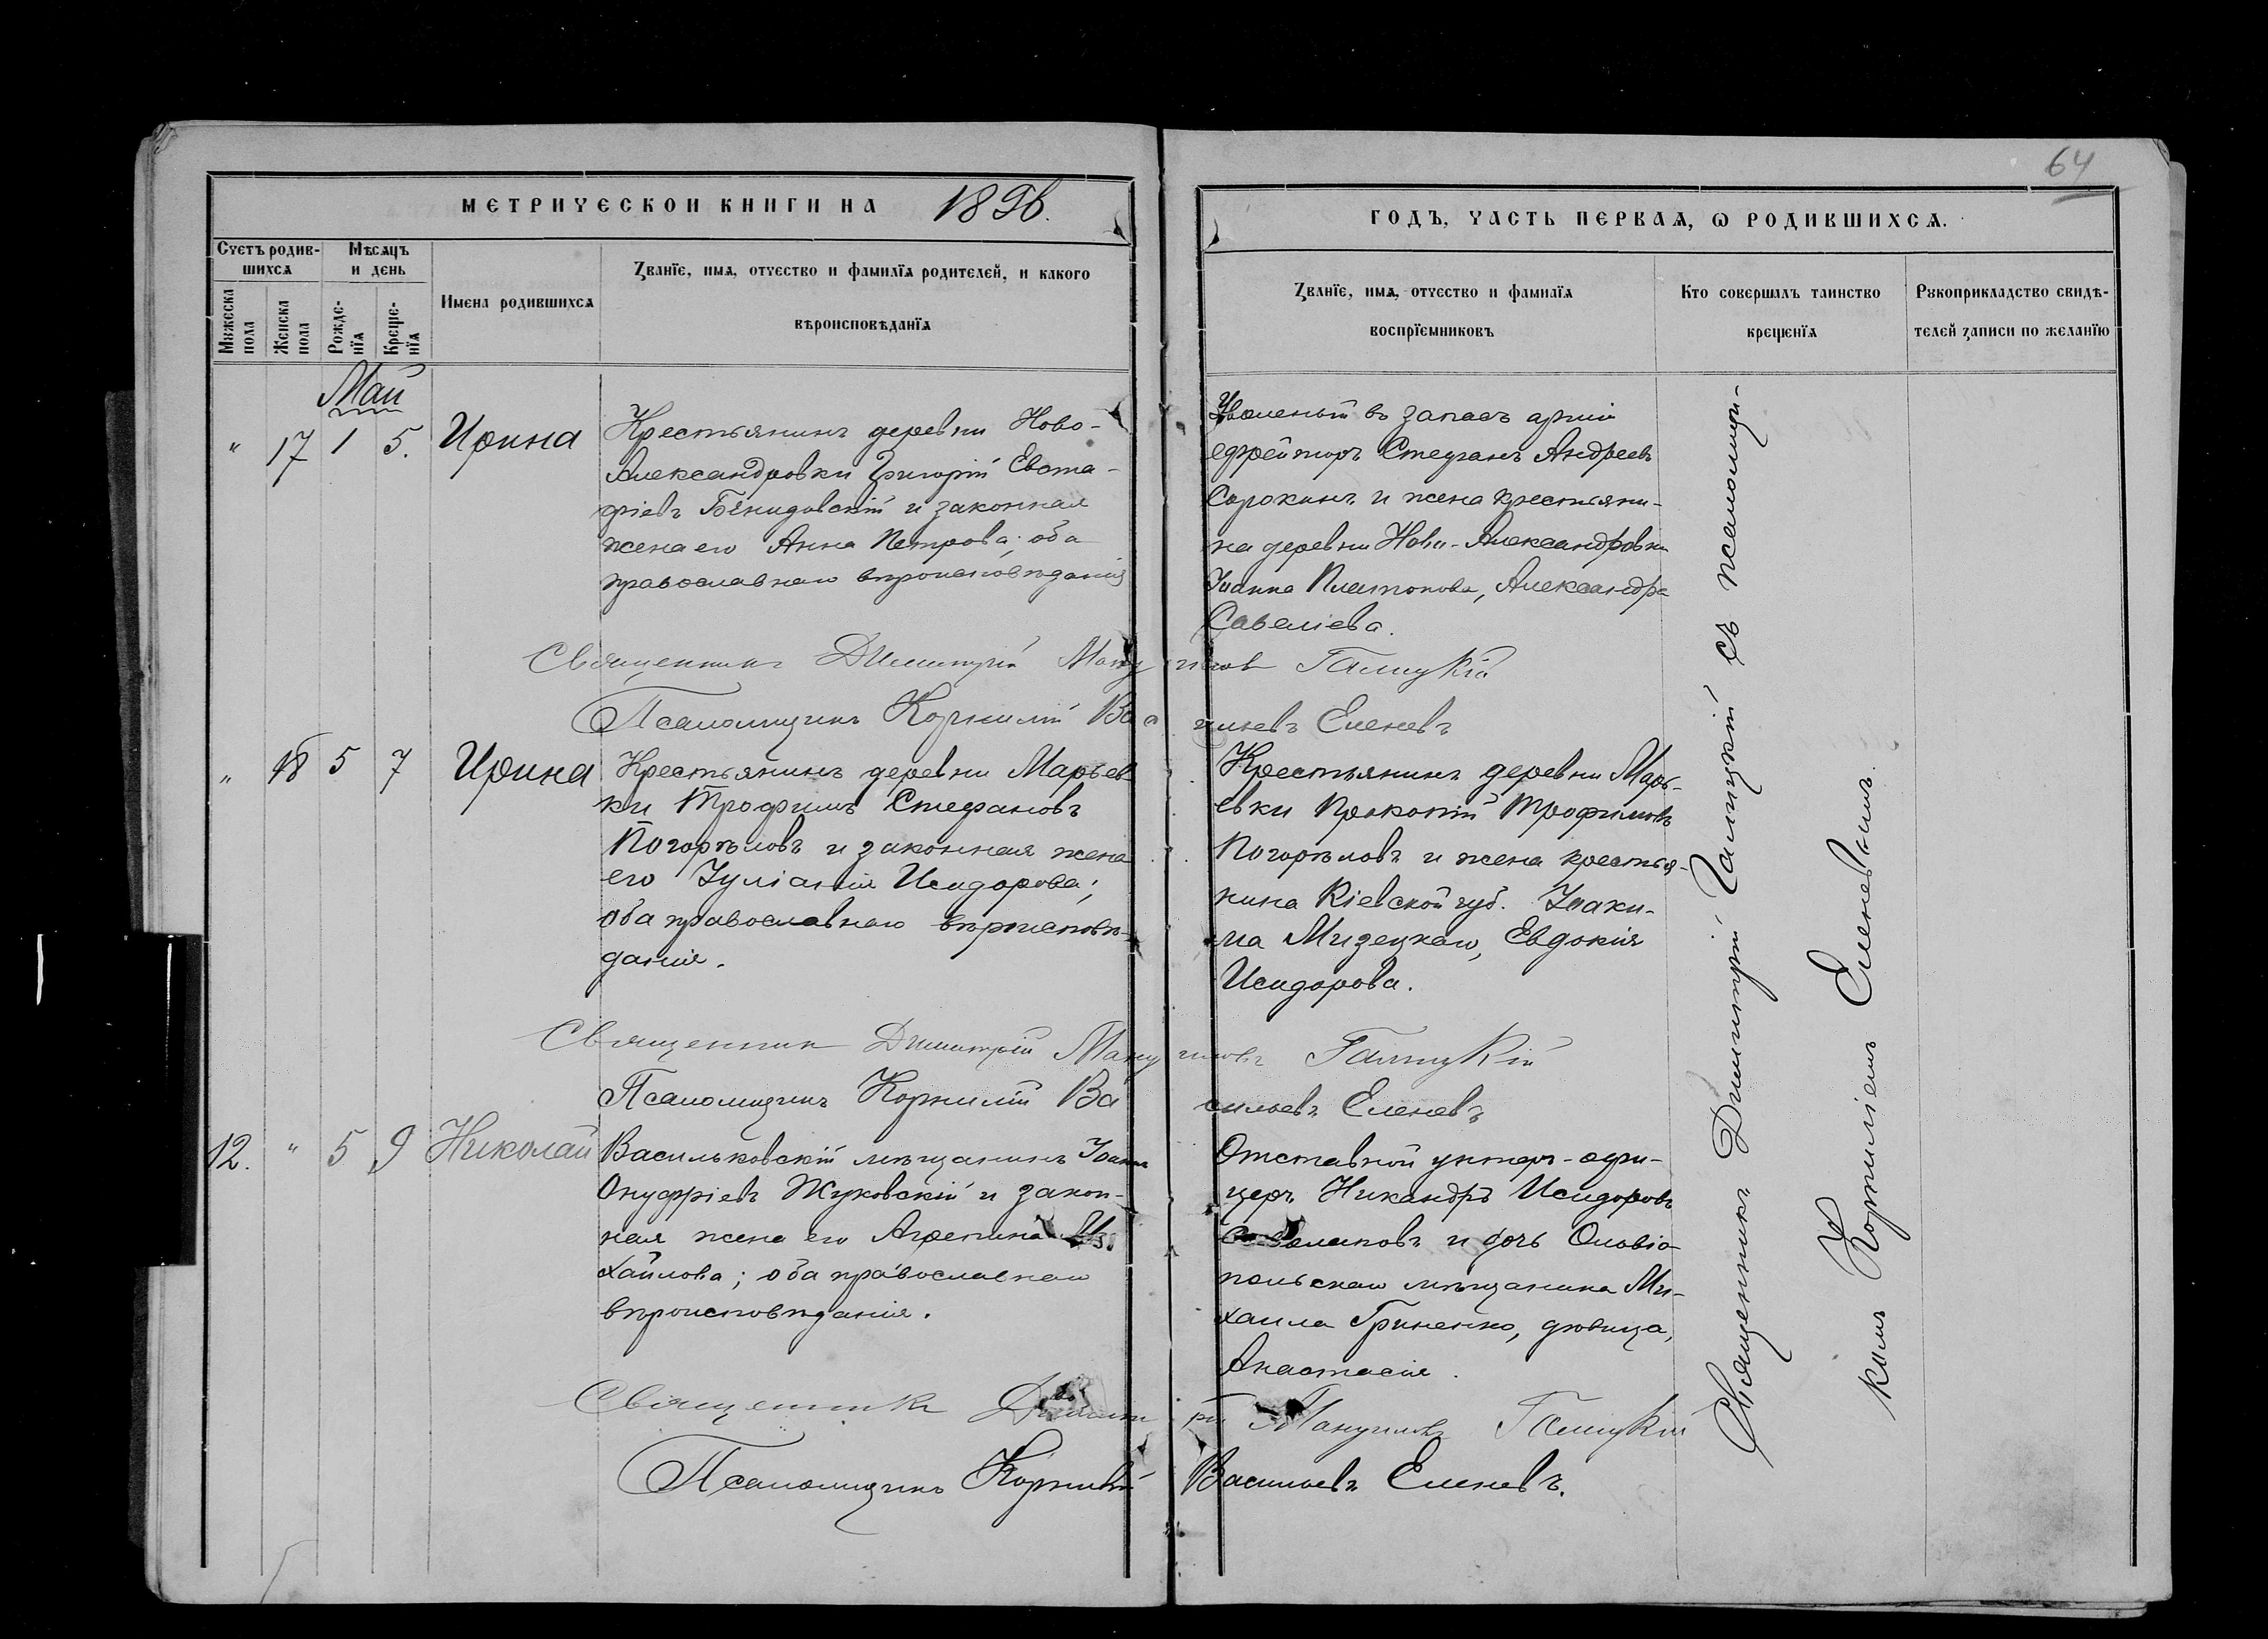 64
МЕТРИЧЕСКОЙ КНИГИ НА 1896.
ГОДЪ, ЧАСТЬ ПЕРВАЯ, Ѡ РОДИВШИХСЯ.
Счетъ родив-
шихся
Мѣсяцъ
и день
Мужеска
пола
Женска
пола
Рожде-
нїя
Креще-
нїя
Имена родившихся
Званїе, имя, отчество и фамилїя родителей, и какого
вѣроисповѣданїя
Званїе, имя, отчество и фамилїя
воспрїемниковъ
Кто совершалъ таинство
крещенїя
Рукоприкладство свидѣ-
телей записи по желанїю
Май
" 17 1 5. Ирина
Крестьянинъ деревни Ново-
Александровки Григорій Евста-
фіевъ и законная
жена его Анна Петрова; оба
православнаго вѣроисповѣданія
Уволеный въ запасъ арміи
ефрейторъ Стефанъ Андреевъ
Сорокинъ и жена крестьяни-
на деревни Ново-Александровки
Іоанна Платонова, Александра
Савеліева.
Священникъ Димитрій Мануиловъ Галицкій
Псаломщикъ Корнилій Васильевъ Еленевъ
" 18 5 7 Ирина
Крестьянинъ деревни Марьев-
ки Трофимъ Стефановъ
Погорѣловъ и законная жена
его Іуліанія Исидорова;
оба православнаго вѣроисповѣ-
данія.
Крестьянинъ деревни Марь-
евки Прокопій Трофимовъ
Погорѣловъ и жена крестья-
нина Кіевской губ. Іоаки-
ма Мизецкаго, Евдокія
Исидорова.
Священникъ Димитрій Мануиловъ Галицкій
Псаломщикъ Корнилій Васильевъ Еленевъ
12. " 5 9 Николай
Васильковскій мѣщанинъ Іоаннъ
Онуфріевъ Жуковскій и закон-
ная жена его Агрепина Ми-
хайлова; оба православнаго
вѣроисповѣданія.
Отставной унтеръ-офи-
церъ Никандръ Исидоровъ
и дочь Ольвіо-
польскаго мѣщанина Ми-
хаила Гриненко, дѣвица,
Анастасія.
Священникъ Димитрій Мануиловъ Галицкій
Псаломщикъ Корнилій Васильевъ Еленевъ.
Священникъ Димитрій Галицкій съ псаломщи-
комъ Корниліемъ Еленевымъ.